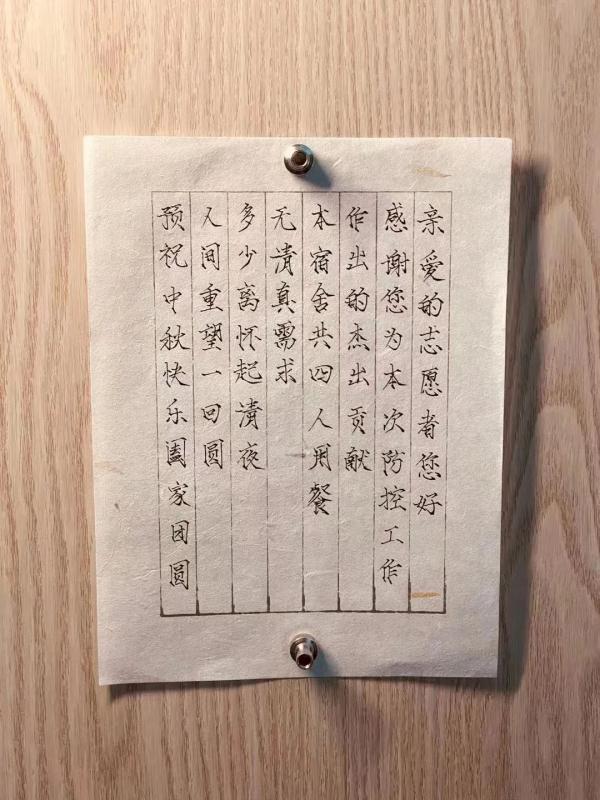 亲爱的志愿者您好
感谢您为本次防控工作
作出的杰出贡献
本宿舍共四人用餐
无清真需求
多少离怀起清夜
人间重望一回圆
预祝中秋快乐阖家团圆